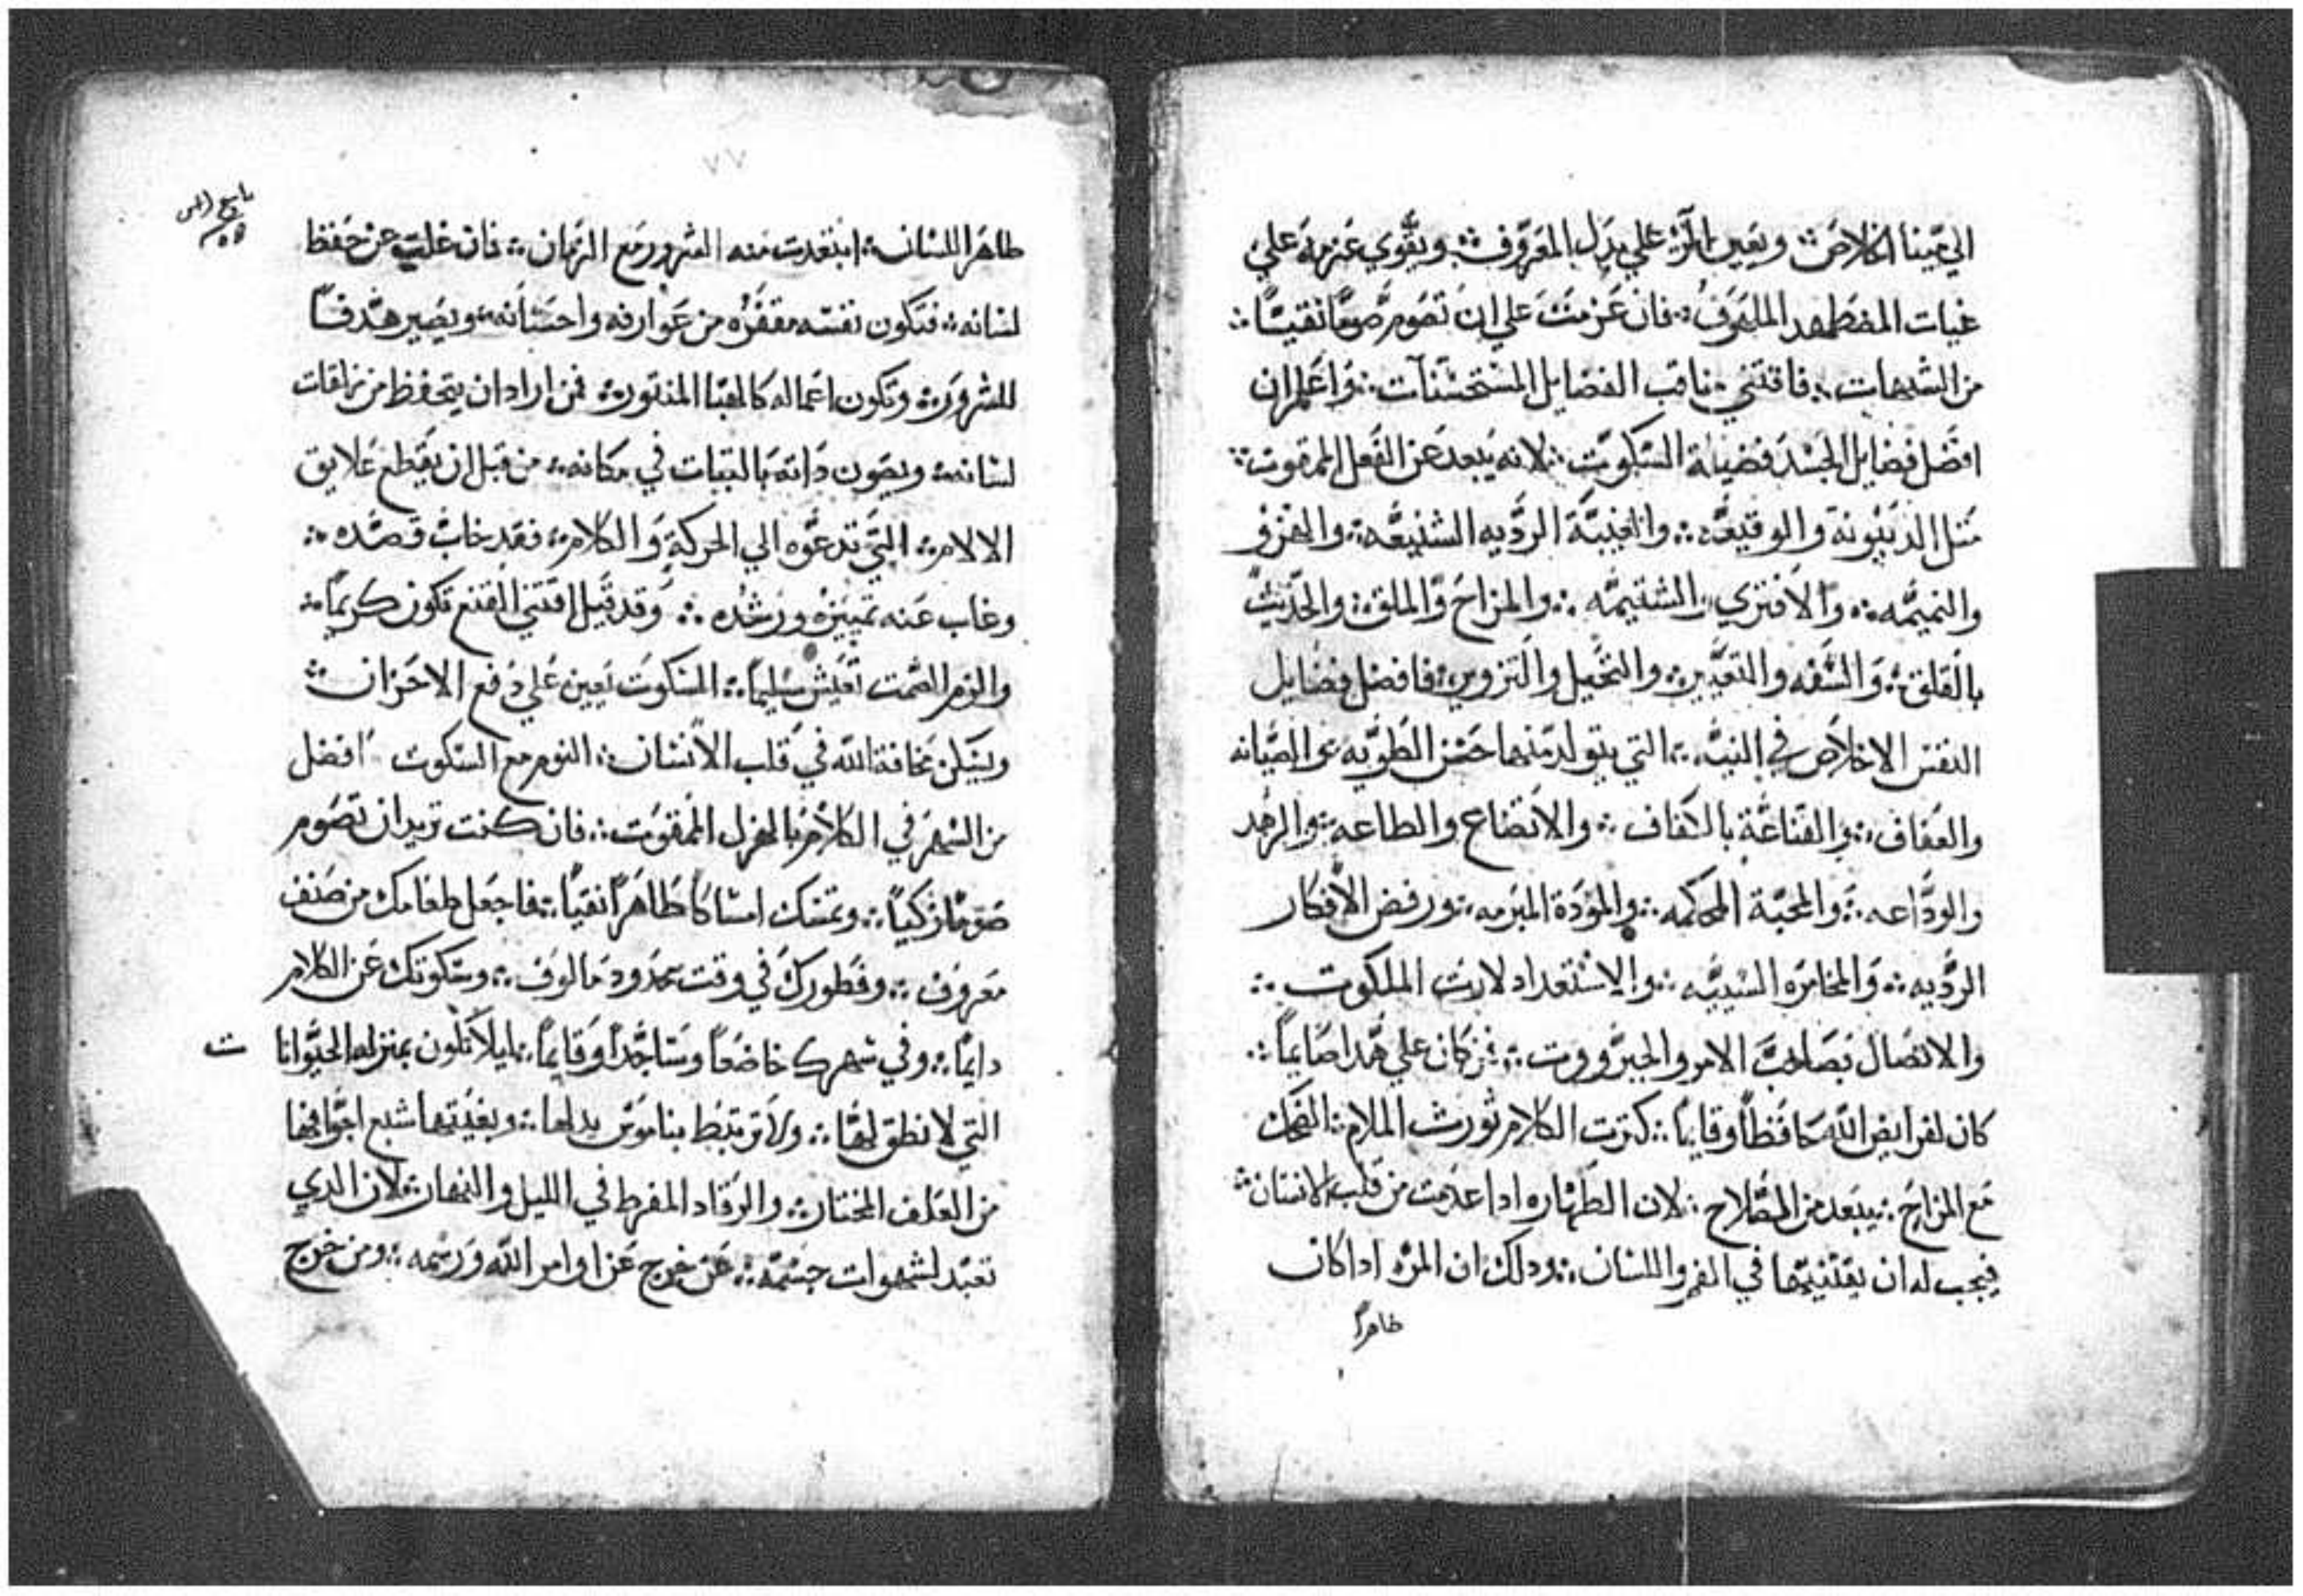 الي مينا الخلاص ܀ ويعين المرء علي بذل المعروف ܀ ويقوي عزمه علي
غياث المضطهد الملهوف ܀ فان عزمت علي ان تصوم صوما نقيسا ܀
من الشبهات ܀ فاقتني مناقب الفضايل المستحسنات ܀ واعلم ان
افضل فضايل الجسد فضيلة السكوت ܀ لانه يبعد عن الفعل الممقوت ܀
مثل الدينونه والوقيعه ܀ والغيبة الرديه الشنيعه ܀ والهزو
والنميمه ܀ والافتري والشتيمه ܀ والمزاح والملق ܀ والحديث
بالقلق ܀ والسفه والتعيير ܀ والتخيل والتزوير ܀ فافضل فضايل
النفس الاخلاص في النيه ܀ التي يتولد منها حسن الطويه والصيانه
والعفاف ܀ والقناعة بالكفاف ܀ والاتضاع والطاعه ܀ والزهد
والوداعه ܀ والمحبة المحكمه ܀ والمودة المبرمه ܀ ورفض الافكار
الرديه ܀ والمخامره السييه ܀ والاستعداد لارث الملكوت ܀
والاتصال بصاحب الامر والجبرووت ܀ فمن كان علي هدا صايما ܀
كان لفرايض الله حافظا وقايما ܀ كترت الكلام تورث الملام ܀ الضحك
مع المزاح ܀ يبعد من الصلاح ܀ لان الطهاره ادا عدمت من قلب الانسان ܀
فيجب له ان يقتنيها في الفم واللسان ܀ ودلك ان المرء ادا كان
طاهرا
٧٧
طاهر اللسان ܀ ابتعدت منه الشرور مع الزمان ܀ فان غلب عن حفظ
لسانه ܀ فتكون نفسه مقفره من عوارفه واحسانه ܀ ويصير هدفا
للشرور ܀ وتكون اعماله كالهبا المنتور ܀ فمن اراد ان يتحفظ من زلقات
لسانه ܀ ويصون داته بالتبات في مكانه ܀ من قبل ان يقطع علايق
الالام ܀ التي تدعوه الي الحركة والكلام ܀ فقد خاب قصده ܀
وغاب عنه تمييزه ورشده ܀ وقد قيل اقتني القنع تكون كريما ܀
والزم الصمت تعيش سليما ܀ السكوت يعين علي دفع الاحزان ܀
ويسكن مخافة الله في قلب الانسان ܀ النوم مع السكوت افضل
من السهر في الكلام بالهزل الممقوت ܀ فان كنت تريد ان تصوم
صوما زكيا ܀ وتمسك امساكا طاهرا نقيا ܀ فاجعل طعامك من صنف
معروف ܀ وفطورك في وقت محدود مالوف ܀ وسكوتك عن الكلام
دايما ܀ وفي سهرك خاضعا وساجدا وقايما ܀ ليلا تكون بمنزله الحيوانا ت
التي لا نطق لها ܀ ولا ترتبط بناموس يدلها ܀ وبغيتها شبع اجوافها
من العلف المختار ܀ والرقاد المفرط في الليل والنهار ܀ لان الدي
تعبد لشهوات جسمه ܀ عن خرج عن اوامر الله ورسمه ܀ ومن خرج